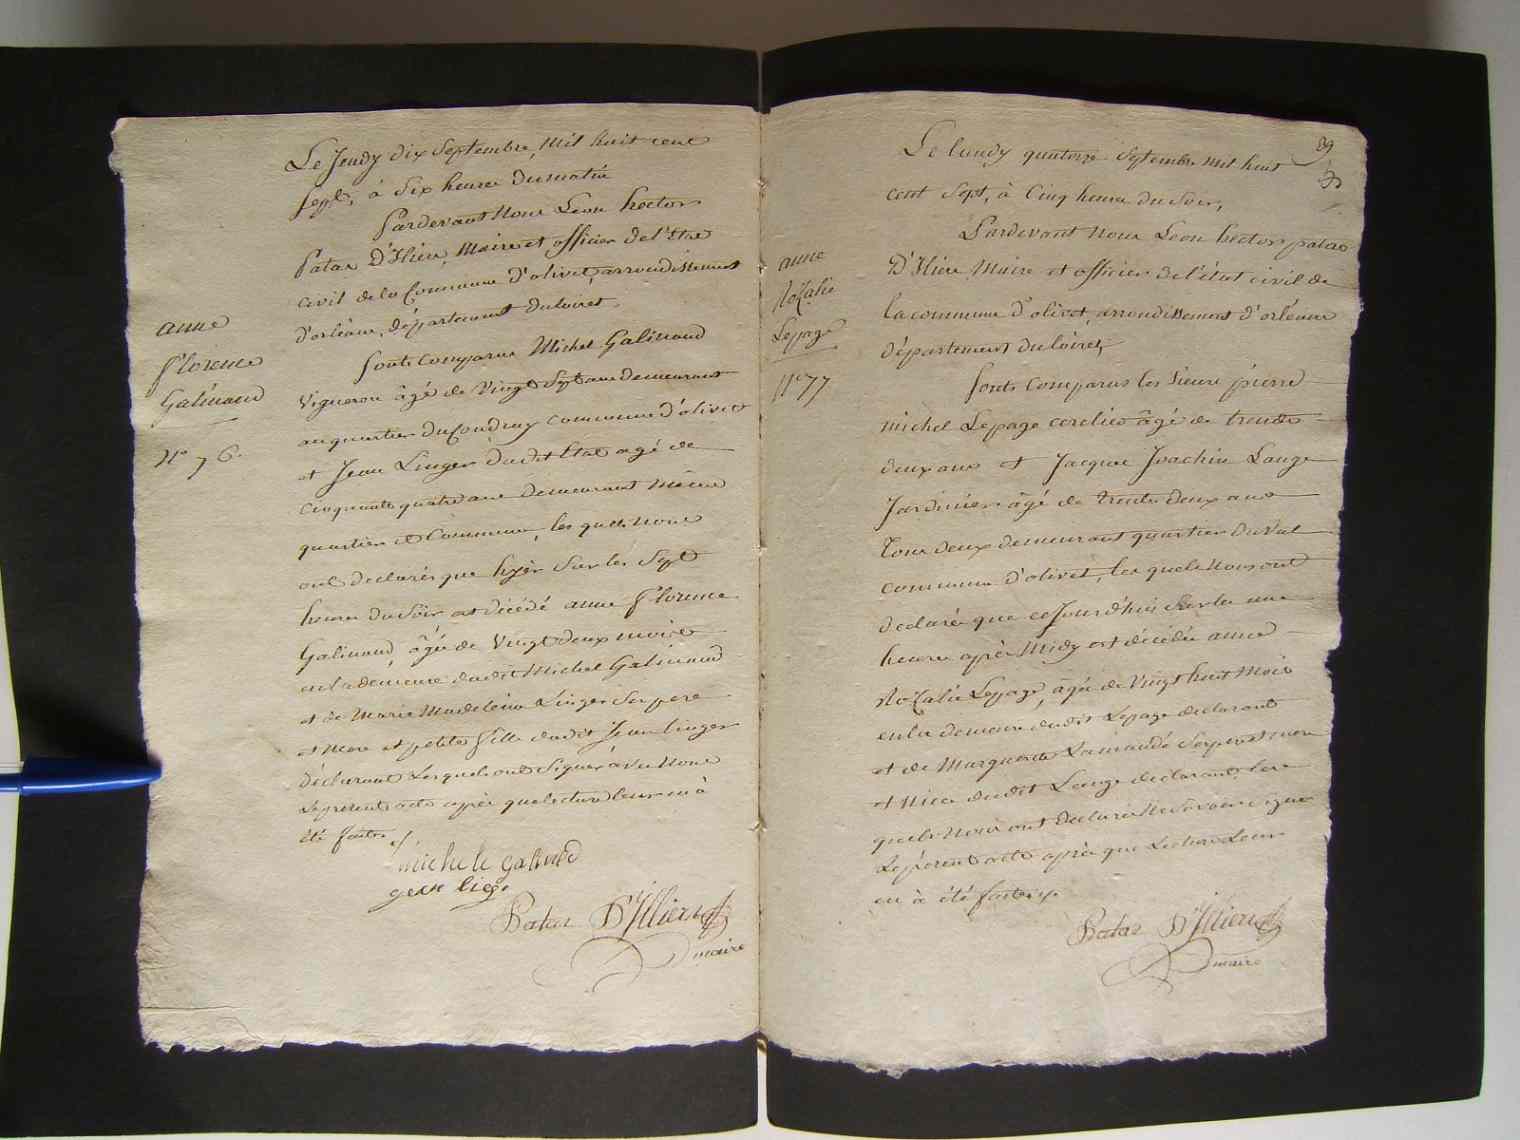 Le Jeudy dix Septembre, Mil huit cent
Sept, à Six heures du matin
Pardevant Nous Leon hector
Patas D'Illiers, Maire et officier de l'Etat
civil de la Commune d'olivet, arrondissement
d'orléans, département du loiret
Sont Comparus Michel Galinand
Vigneron âgé de Vingt Sept ans demeurant
au quartier du Coudray commune d'olivet
et Jean Linger dudit Etat agé de
cinquante quatre ans demeurant même
quartier et Commune, les quels nous
ont declarés que hyèr Sur les Sept
heures du Soir est décédé anne florence
Galinand, âgée de Vingt deux mois
en la demeure dudit Michel Galinand
et de Marie Madeleine Linger Ses pere
et Mere et petite fille dudit Jean linger
déclarant Lesquels ont Signés avec Nous
Le présent acte après que lecture leur en à
été faite ./.
michele galined
Patas D'Illiers
maire
anne
florence
Galinand
N° 76.
89
Le lundy quatorze Septembre mil huit
cent Sept, à Cinq heures du Soir,
Pardevant nous Leon hector patas
D'Illiers Maire et officier de l'état civil de
la commune d'olivet, arrondissement d'orléans
département du loiret,
Sont Comparus les Sieurs pierre
michel Lepage âgé de trente
deux ans et Jacques Joachin Lange
Jardinier âgé de trente deux ans
tous deux demeurant quartier du Val
commune d'olivet, les quels nous ont
declaré que ce Jourd'hui Sur les une
heure après Midy est décédée anne
Rozalie Lepage, âgée de Vingt huit Mois
en la demeure dudit Lepage declarant
et de Marguerite Lamandé Ses pere et mere
et Niece dudit Lange declarant, les
quels Nous ont declarés Ne Savoir Signer
Le présent acte après que Lecture Leur
en à été faite ./.
Patas D'Illiers
maire
anne
Rozalie
Lepage
N° 77